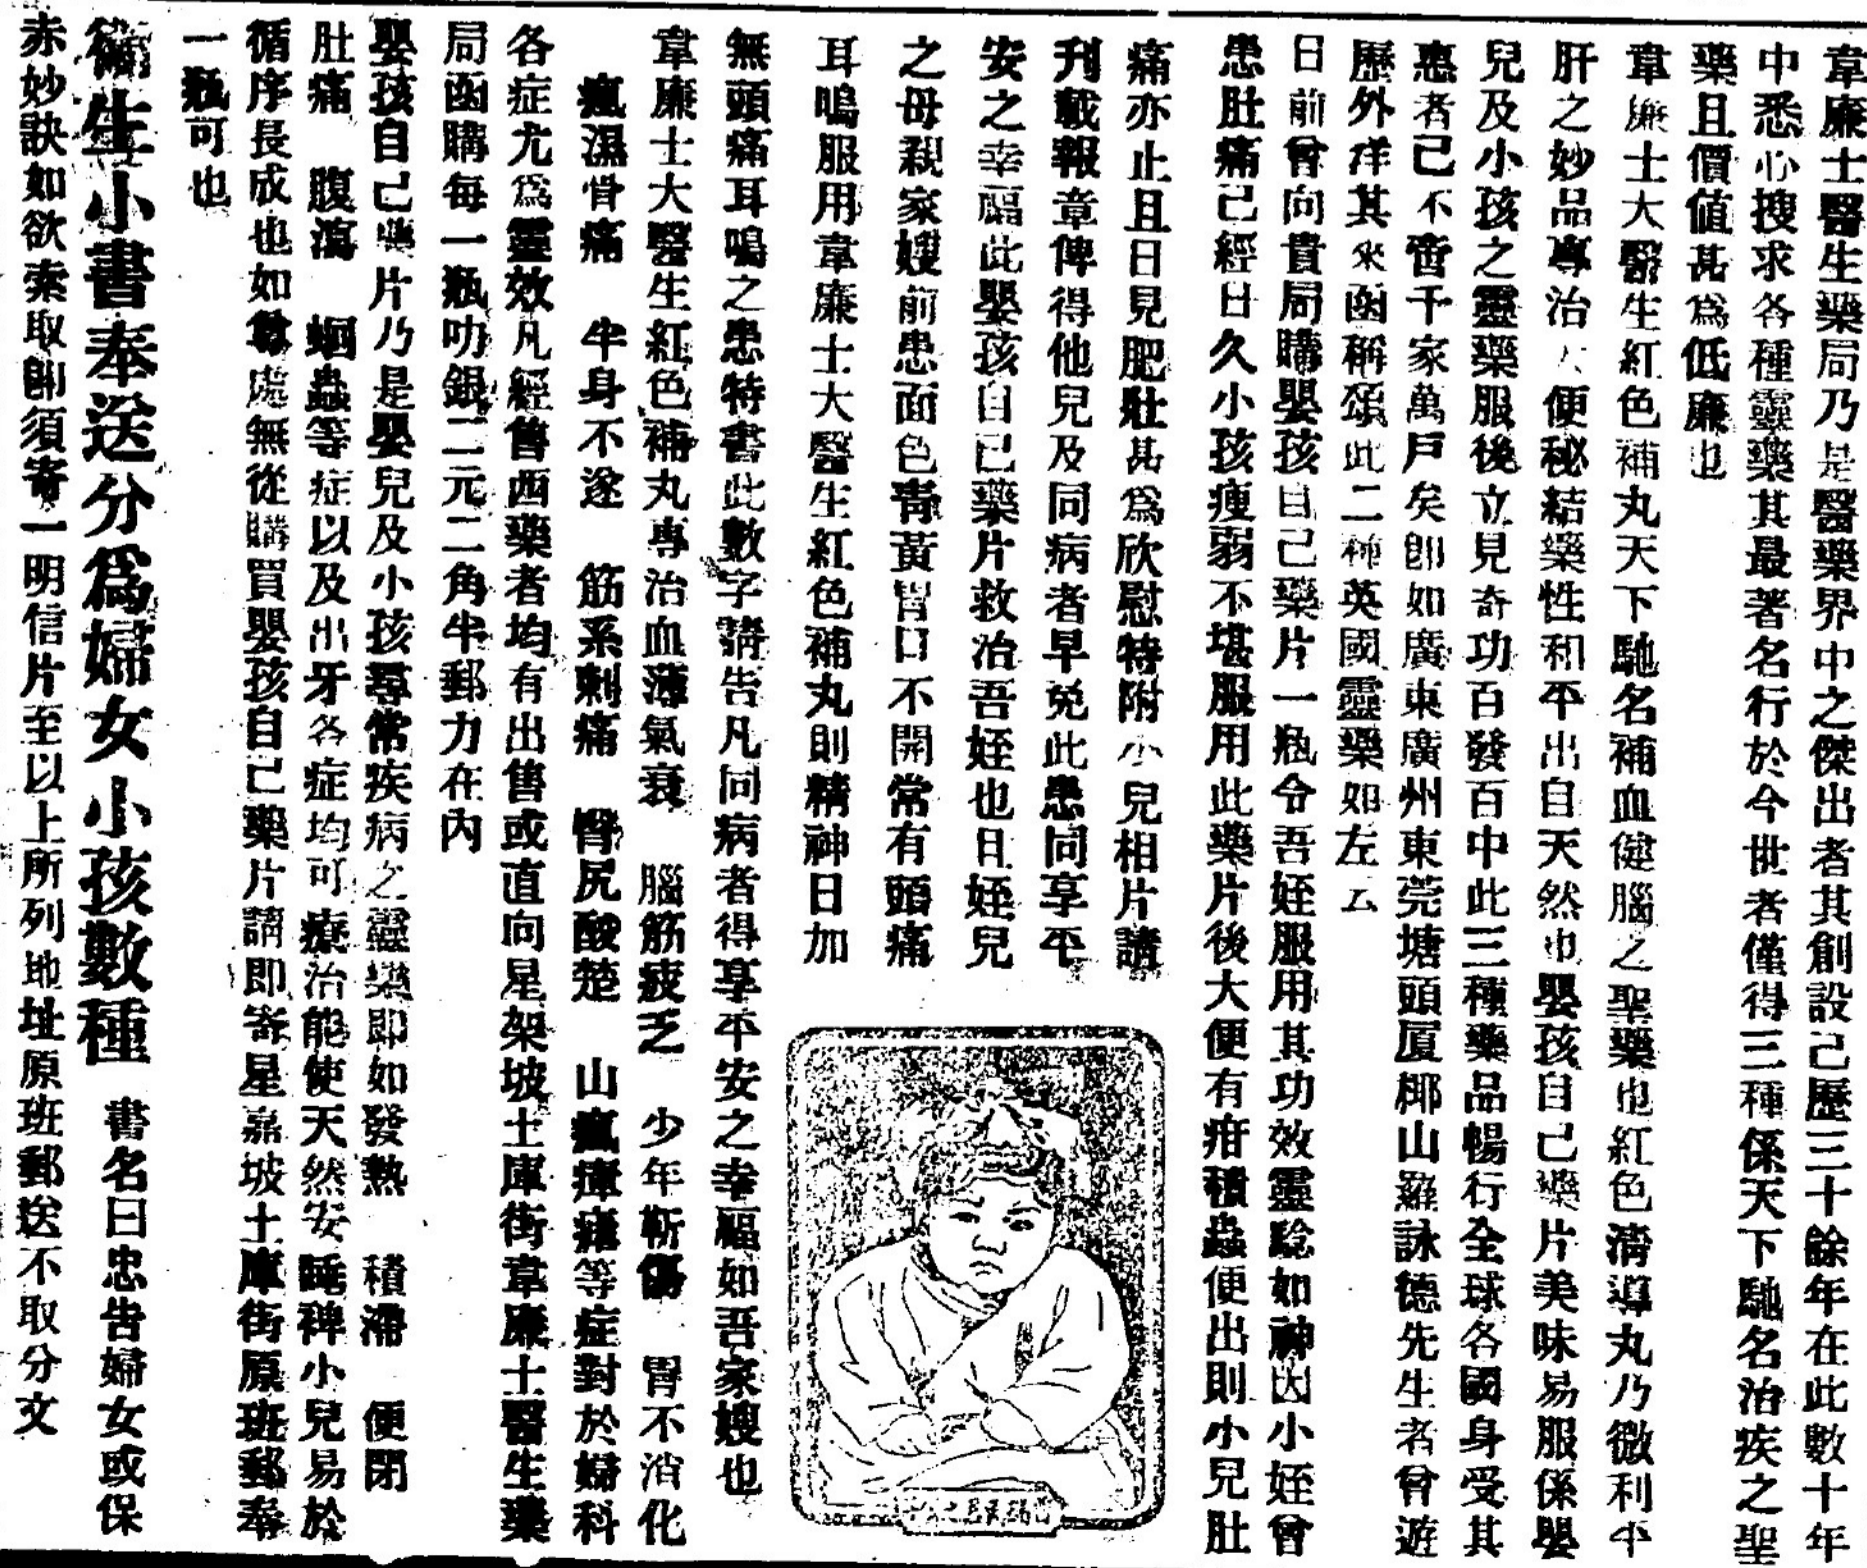 韋廉士醫生藥局乃是醫藥界中之傑出者其創設己歷三十餘年在此數十年
中悉心搜求各種靈藥其最著名行於今世者僅得三種係天下馳名治疾之聖
藥且價値甚爲低廉也
韋廉士大醫生紅色補丸天下馳名補血健腦之聖藥也紅色清導丸乃微利平
肝之妙品專治大便秘結藥性和平出自天然也嬰孩自己藥片美味易服係嬰
兒及小孩之靈藥服後立見奇功百發百中此三種藥品暢行全球各國身受其
惠者己不啻千家萬戶矣卽如廣東廣州東莞塘頭厦梛山羅詠德先生者曾遊
歷外洋其來函稱頌此二種英國靈藥如左云
日前曾向貴局購嬰孩自己藥片一瓶令吾姪服用其功效靈騐如神因小姪曾
患肚痛己經日久小孩瘦弱不堪服用此藥片後大便有疳積蟲便出則小兒肚
痛亦止且日見肥壯甚爲欣慰特附小兒相片請
刊載報章俾得他兒及同病者早免此患同享平
安之幸福此嬰孩自己藥片救治吾姪也且姪兒
之母親家嫂前患面色靑黃胃口不開常有頭痛
耳鳴服用韋廉士大醫生紅色補丸則精神日加
無頭痛耳鳴之患特書此數字請告凡同病者得享平安之幸福如吾家嫂也
韋廉士大醫生紅色補丸專治血薄氣衰 腦筋疲乏 少年斲傷 胃不消化
瘋濕骨痛 半身不遂 筋系刺痛 臀尻酸楚 山嵐瘴瘧等症對於婦科
各症尤爲靈效凡經售西藥者均有出售或直向星架坡土庫街韋廉士醫生藥
局函購每一瓶叻銀二元二角半郵力在內
嬰孩自己藥片乃是嬰兒及小孩尋常疾病之靈藥即如發熱 積滯 便閉
肚痛 腹瀉 蛔蟲等症以及出牙各症均可療治能使天然安睡稗小兒易於
循序長成也如尊處無從購買嬰孩自己藥片請即寄星嘉坡土庫街原班郵奉
一瓶可也
衛生小書奉送分爲婦女小孩數種 書名曰忠告婦女或保
赤妙訣如欲索取卽須寄一明信片至以上所列地址原班郵送不取分文